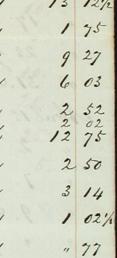 13 12½
1 75
9 27
6 03
2 52
2 02
12 75
2 50
3 14
1 02½
" 77